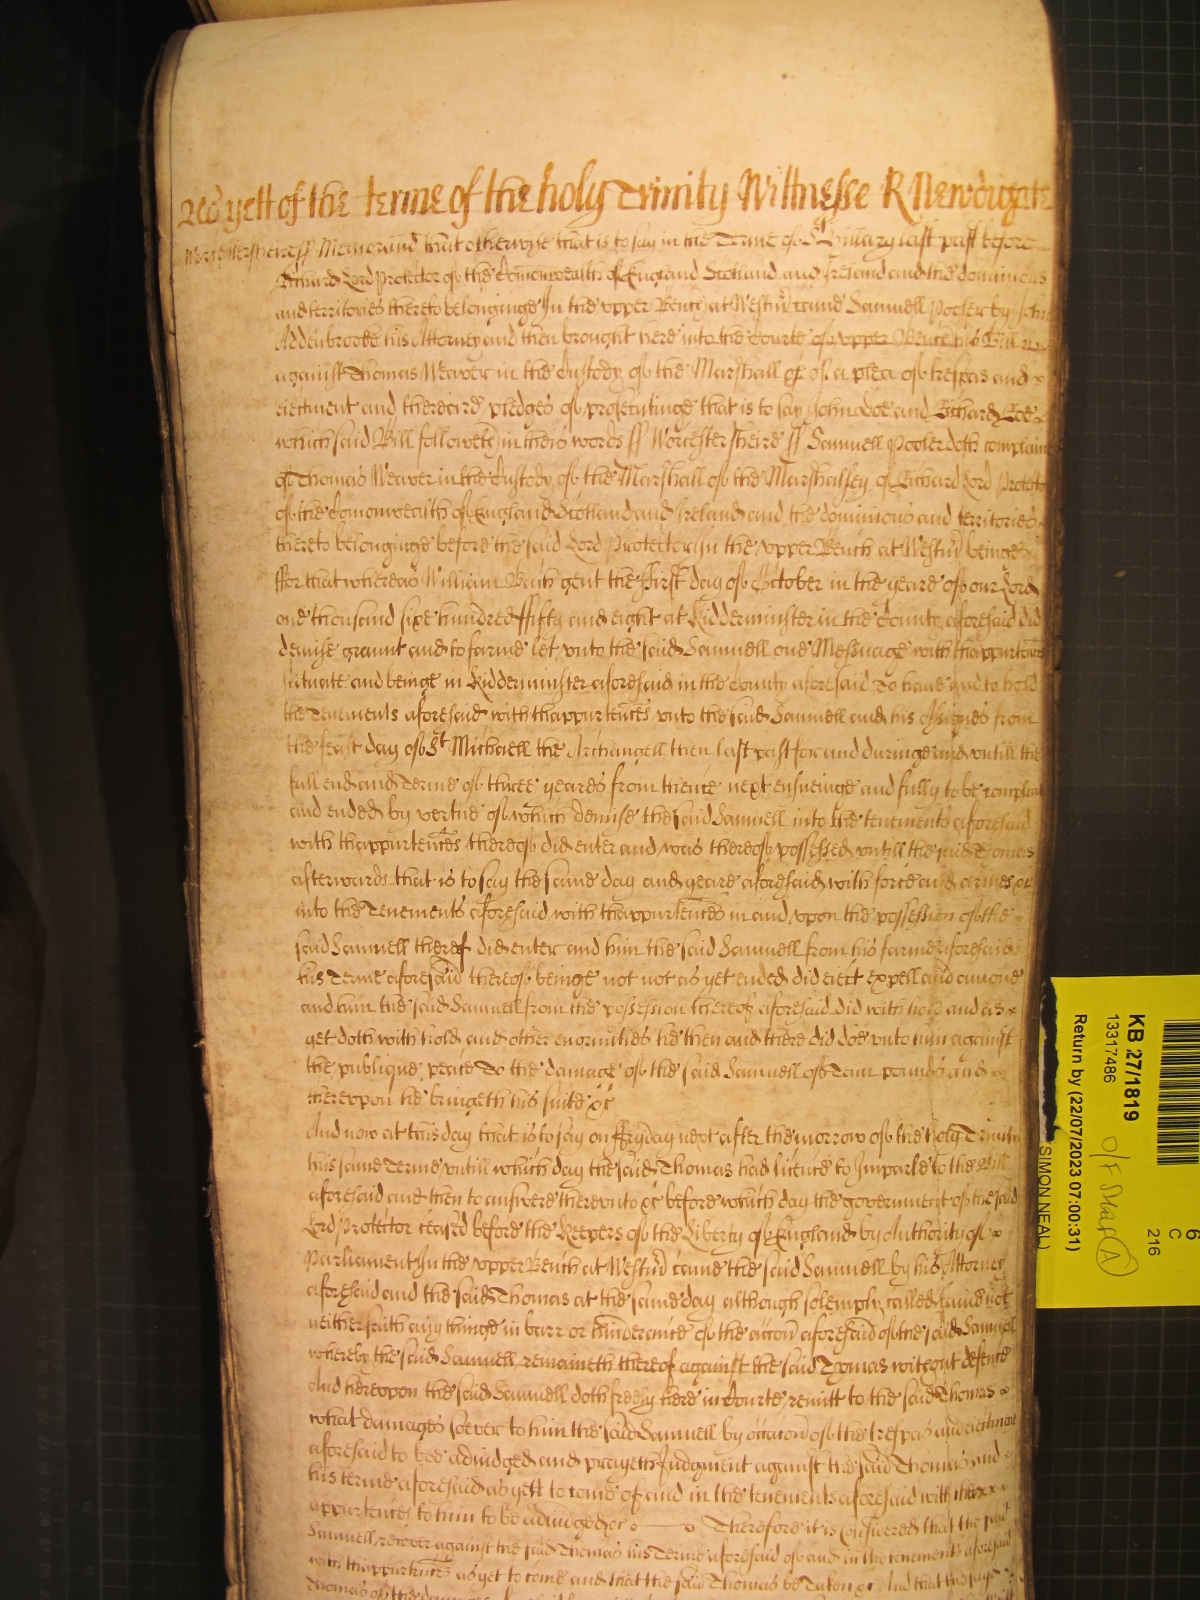 as yett of the terme of the holy Trinity Wittnesse R Newdigate
Worcestersheire ff Memorand that otherwise that is to say in the Terme of St Hillary last past before
Richard Lord Protector of the Comonwealth of England Scotland and Ireland and the dominions
and territories thereto belonginge In the upper Bench at Westmr came Samuell Pooler by John
Addenbrooke his Attorney and then brought here into the Courte of upper Bench his Bill
against Thomas Weaver in the Custody of the Marshall &c of a plea of trespas and
eiectment and there are pledges of prosecutinge that is to say John Doe and Richard Roe
which said Bill followeth in theis words ff Worcestersheire ff Samuell Pooler doth complaine
of Thomas Weaver in the Custody of the Marshall of the Marshalsey of Richard Lord Protector
of the Comonwealth of England Scotland and Ireland and the dominions and territories
thereto belonginge before the said Lord Protector in the upper Bench at Westmr beinge
ffor that whereas William Bach gent the first day of October in the yeare of our Lord
one thousand sixe hundred fifty and eight at Kidderminster in the County aforesaid did
demise graunt and to farme let unto the said Samuell one Messuage with thappurtences
scituate and beinge in Kidderminster aforesaid in the County aforesaid To have and to hold
the Tenements aforesaid with thappurtences unto the said Samuell and his Assignes from
the feast day of St Michaell the Archangell then last past for and duringe and untill the
full end and Terme of three yeares from thence next ensueinge and fully to be compleat
and ended by vertue of which demise the said Samuell into the tenements aforesaid
with thappurtences thereof did enter and was thereof possessed untill the said Thomas
afterwards that is to say the same day and yeare aforesaid with force and armes &c
into the Tenements aforesaid with thappurtences in and upon the possession of the
said Samuell thereof did enter and him the said Samuell from his farme aforesaid
his Terme aforesaid thereof beinge not not as yet ended did eiect expell and amove
and him the said Samuell from the possession thereof aforesaid did with hold and as
yet doth with hold and other enormities he then and there did doe unto him against
the publique peace To the damage of the said Samuell of Tenn pounds and
thereupon he bringeth his suite &c
And now at this day that is to say on ffryday next after the morrow of the holy Trinity
this same Terme untill which day the said Thomas had licence to Imparle to the Bill
aforesaid and then to answere thereunto &c before which day the government of the said
Lord Protector ceased before the Keepers of the Liberty of England by Authority of
Parliament In the upper Bench at Westmr came the said Samuell by his Attorney
aforesaid and the said Thomas at the same day although solemply called came not
neither saith any thinge in barr or hinderance of the accon aforesaid of the said Samuell
whereby the said Samuell remaineth thereof against the said Thomas without defence
And hereupon the said Samuell doth freely here in Courte remitt to the said Thomas
what damages soever to him the said Samuell by occacon of the trespas and eiectment
aforesaid to bee adiudged and prayeth Judgment against the said Thomas and
his terme aforesaid as yett to come of and in the tenements aforesaid with
appurtences to him to be adiudged &c Therefore it is considered that the said
Samuell recover against the said Thomas his Terme aforesaid of and in the tenements aforesaid
with thappurtences as yet to come and that the said Thomas be Taken &c And that the said
Thomas of the damages
KB 27/1819
13317486
Return by (22/07/2023 07:00:31)
(SIMON NEAL)
O/F Shelf (A)
216
C
6